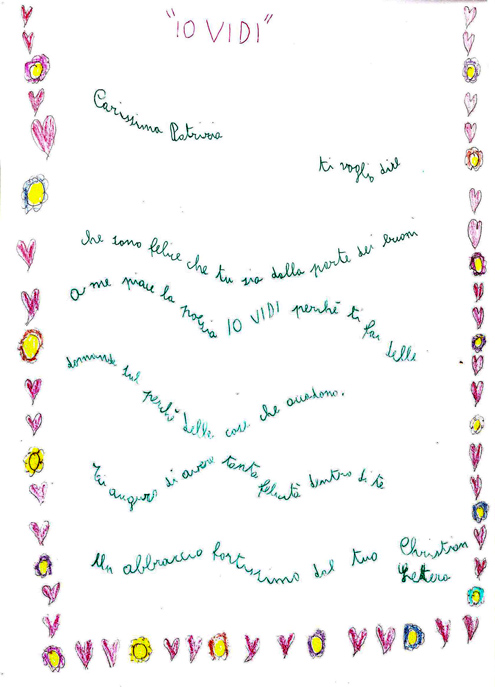 "IO VIDI"
Carissima Patrizia
ti voglio dire
che sono felice che tu sia dalla parte dei buoni
A me piace la poesia IO VIDI perché ti fai delle
domande sul perché delle cose che accadono.
Ti auguro di avere tanta felicità dentro di te
Un abbraccio fortissimo dal tuo Christian
Lettera